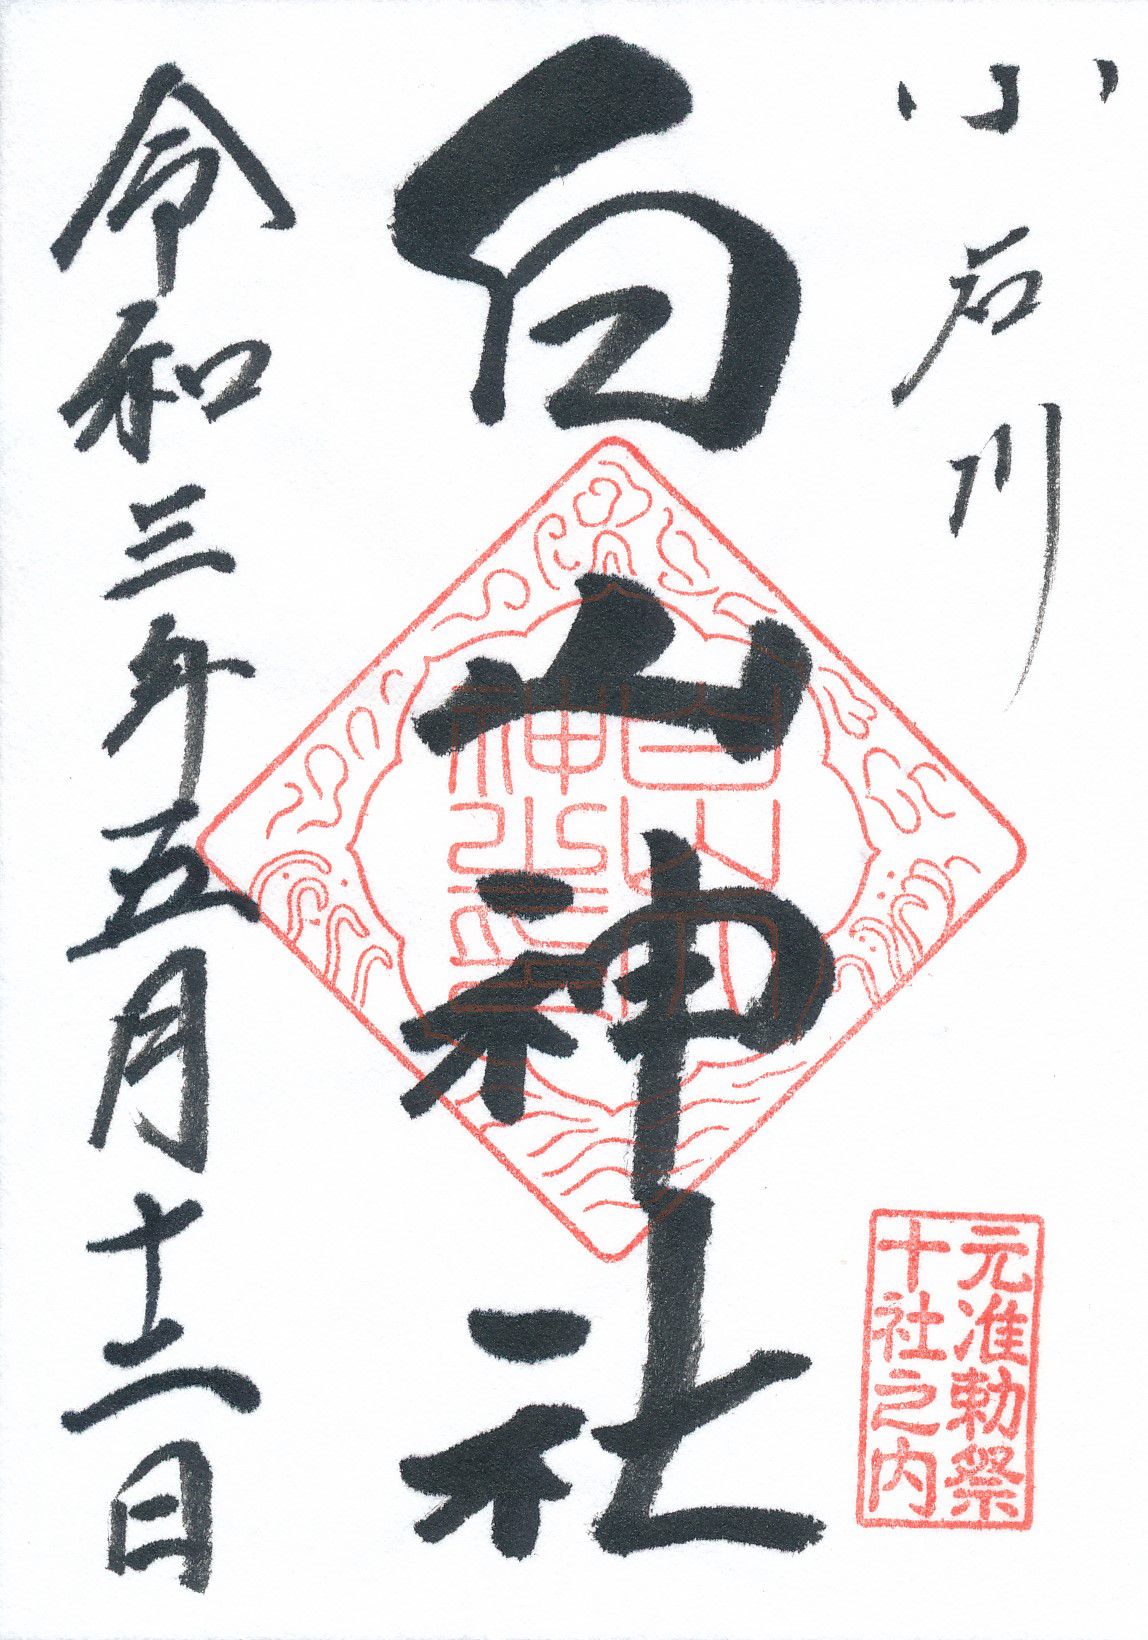 小石川
白山神社
令和三年五月十二日
白山
神璽
元准勅祭
十社之内